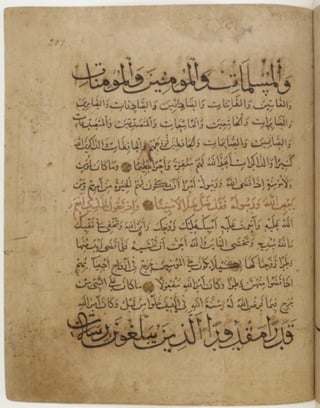 207
والمسلمات والمؤمنين والمؤمنات
والقانتين والقانتات والصادقين والصادقات والصابرين
والصابرات والخاشعين والخاشعات والمتصدقين والمتصدقات
والصائمين والصائمات والحافظين فروجهم والحافظات والذاكرين الله
كثيرا والذاكرات أعد الله لهم مغفرة وأجرا عظيما وما كان لمؤمن
ولا مؤمنة إذا قضى الله ورسوله أمرا أن يكون لهم الخيرة من أمرهم ومن
يعص الله ورسوله فقد ضل ضلالا مبينا وإذ تقول للذي أنعم
الله عليه وأنعمت عليه أمسك عليك زوجك واتق الله وتخفي في نفسك
ما الله مبديه وتخشى الناس والله أحق أن تخشاه فلما قضى زيد منها
وطرا زوجناكها لكيلا يكون على المؤمنين حرج في أزواج أدعيائهم
إذا قضوا منهن وطرا وكان أمر الله مفعولا ما كان على النبي من
حرج فيما فرض الله له سنة الله في الذين خلوا من قبل وكان أمر الله
قدرا مقدورا الذين يبلغون رسالات